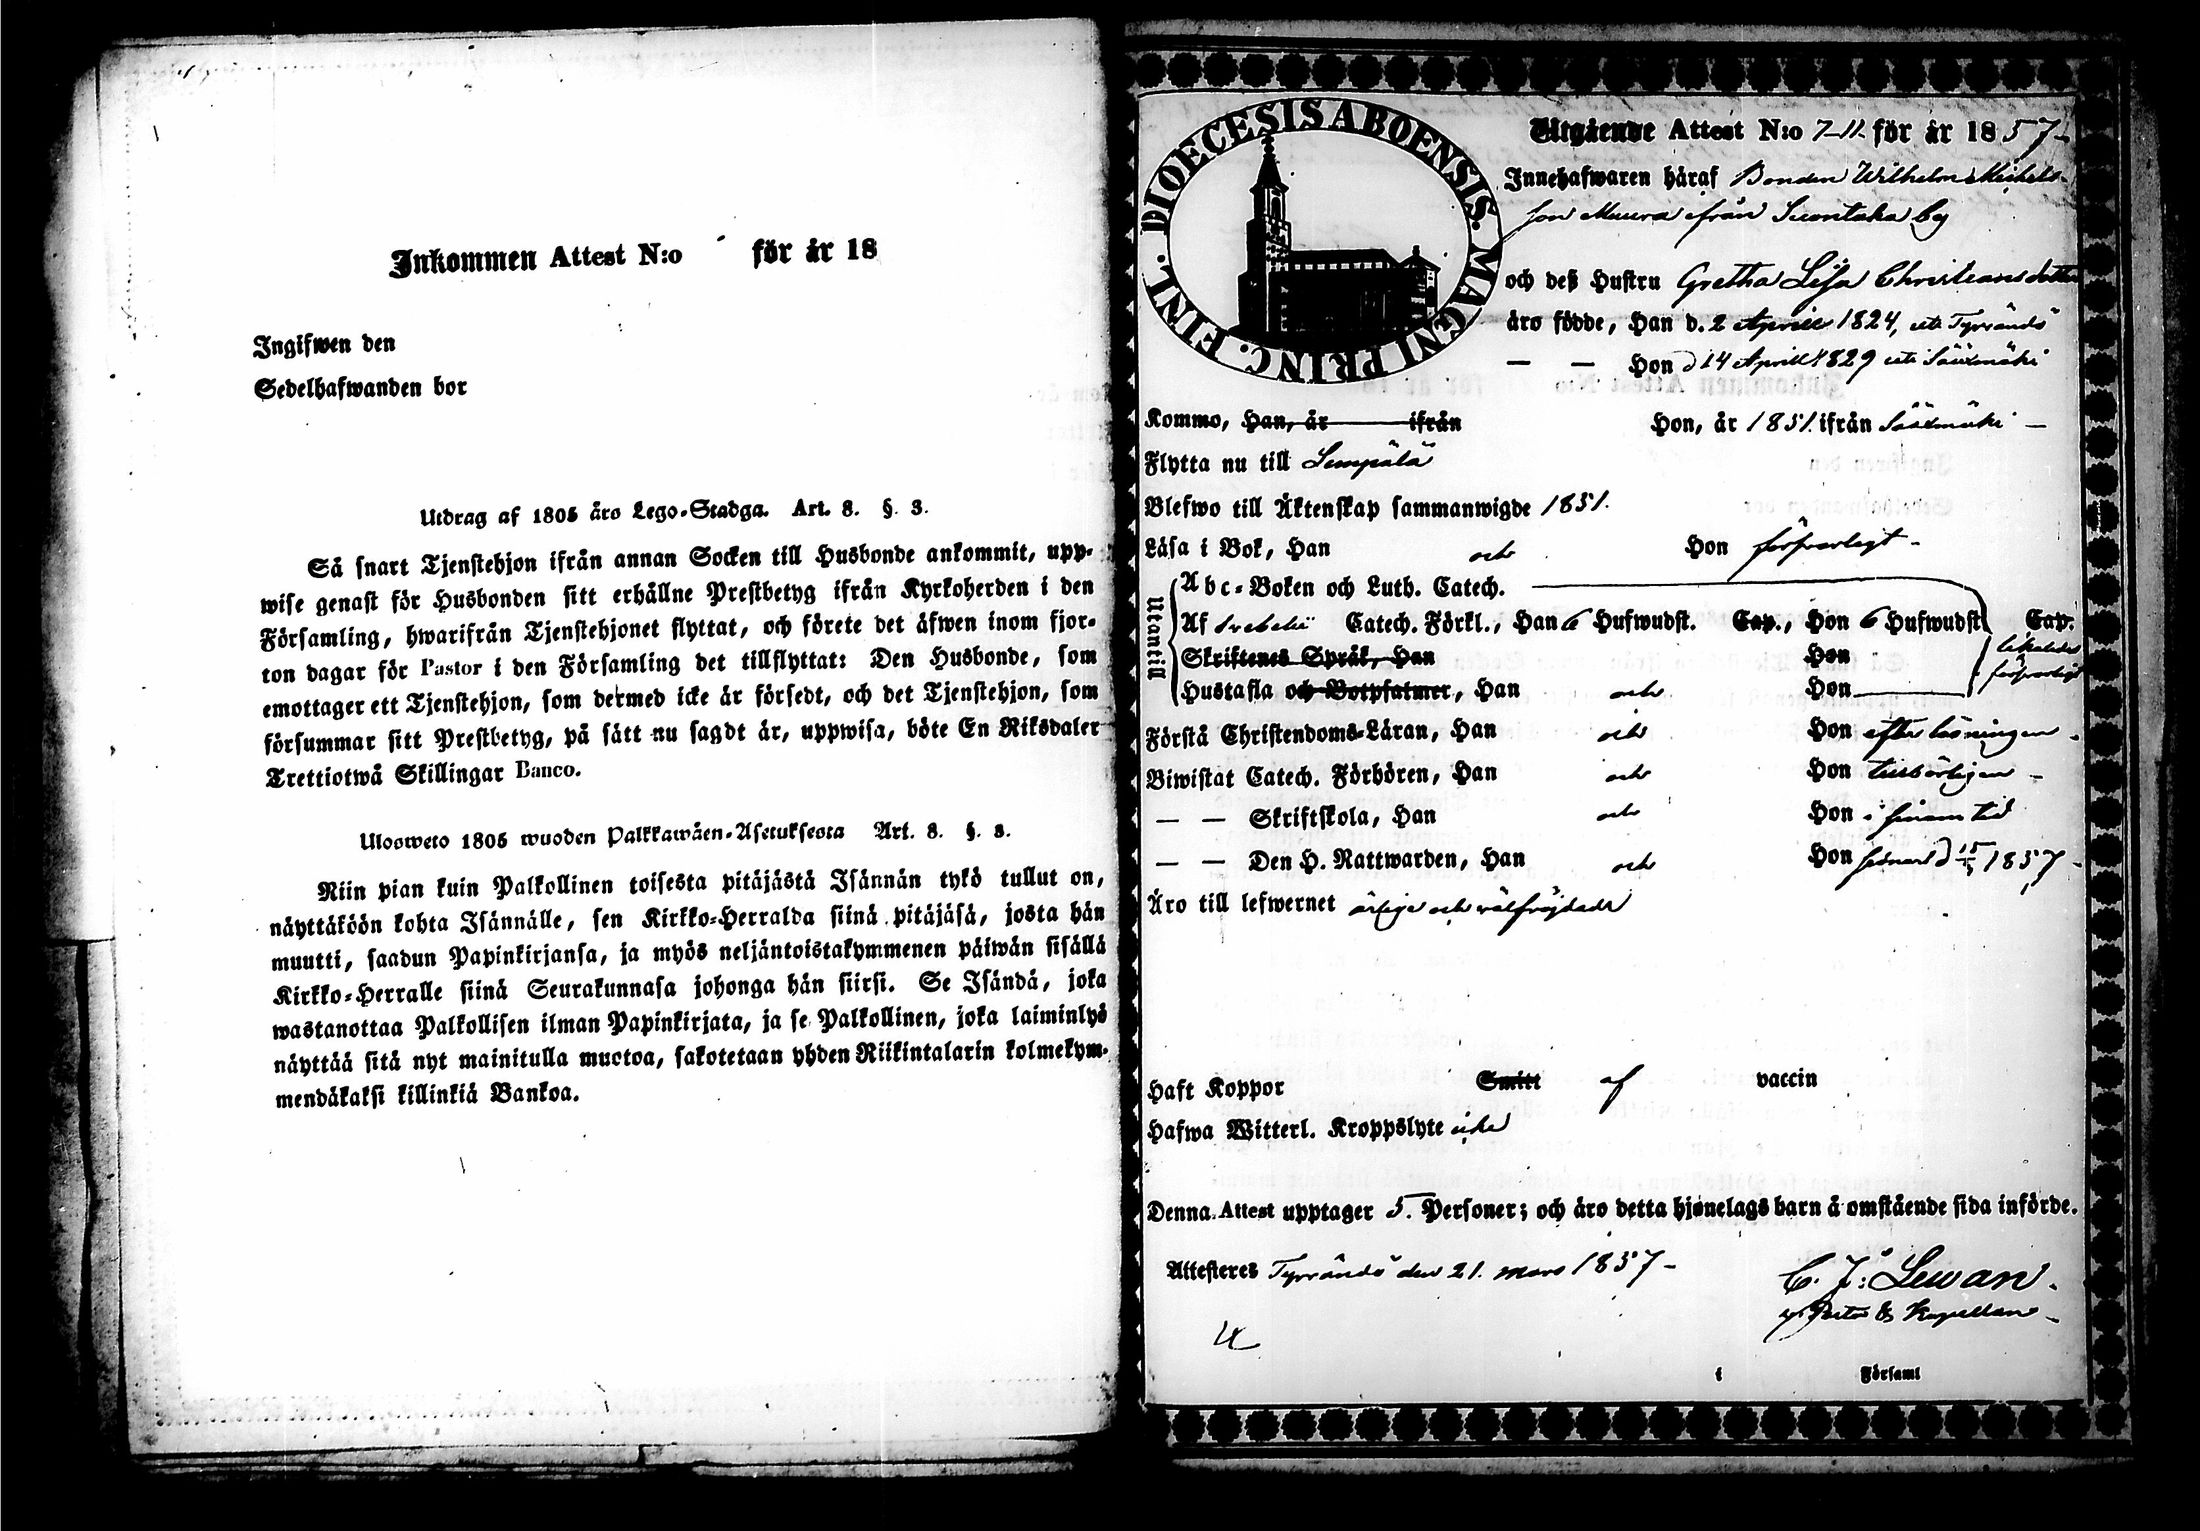 Inkommen Attest N:o för år 18
Ingifwen den
Sedelhafwanden bor
Utdrag af 1805 års Lego-Stadga. Art. 8. §. 3.
Så snart Tjenstehjon ifrån annan Socken till Husbonde ankommit, upp-
wise genast för Husbonden sitt erhållne Prestbetyg ifrån Kyrkoherden i den
Församling, hwarifrån Tjenstehjonet flyttat, och förete det äfwen inom fjor-
ton dagar för Pastor i den Församling det tillflyttat: Den Husbonde, som
emottager ett Tjenstehjon, som dermed icke är försedt, och det Tjenstehjon, som
försummar sitt Prestbetyg, på sätt nu sagdt är, uppwisa, böte En Riksdaler
Trettiotwå Skillingar Banco.
Ulosweto 1805 wuoden Palkkawäen-Asetuksesta Art. 8. §. 3.
Niin pian kuin Palkollinen toisesta pitäjästä Isännän tykö tullut on,
näyttäköön kohta Isännälle, sen Kirkko-Herralda siinä pitäjäsä, josta hän
muutti, saadun Papinkirjansa, ja myös neljäntoistakymmenen päiwän sisällä
Kirkko-Herralle siinä Seurakunnasa johonga hän siirsi. Se Isändä, joka
wastanottaa Palkollisen ilman Papinkirjata, ja se Palkollinen, joka laiminlyö
näyttää sitä nyt mainitulla muotoa, sakotetaan yhden Riikintalarin kolmekym-
mendäkaksi killinkiä Bankoa.
DIOECESIS ABOENSIS. MAGNI PRINC. FINL.
Utgående Attest N:o 7-11. för år 1857-
Innehafwaren häraf Bonden Wilhelm Michels-
son Muura ifrån Suontaka by
och deß Hustru Gretha Lisa Christiansdotter
äro födde, Han d. 2 Aprill 1824, uti Tyrvändö
— — Hon d 14 Aprill 1829 uti Sääxmäki
Kommo, Han, år ifrån Hon, år 1851. ifrån Sääxmäki -
Flytta nu till Lempälä
Blefwo till Äktenskap sammanwigde 1851.
Läsa i Bok, Han och Hon försvarligt -
Utantill
Abc-Boken och Luth. Catech.
Af Svebelii Catech. Förkl., Han 6 Hufwudst. Cap., Hon 6 Hufwudst. Cap.
Skriftenes Språk, Han Hon likaledes
försvarligt
Hustafla och Botpsalmer, Han och Hon
Förstå Christendoms-Läran, Han och Hon efter läsningen -
Biwistat Catech. Förhören, Han och Hon tillbörligen -
— — Skriftskola, Han och Hon i sinom tid
— — Den H. Nattwarden, Han och Hon senast d 15/3 1857 -
Äro till lefwernet ärlige och välfrejdade
Haft Koppor Smitt af vaccin
Hafwa Witterl. Kroppslyte icke
Denna Attest upptager 5. Personer; och äro detta hjonelags barn å omstående sida införde.
Attesteres Tyrvändö den 21. mars 1857 -
C. J: Lewan.
v. Pastor & Kapellan -
i Församl